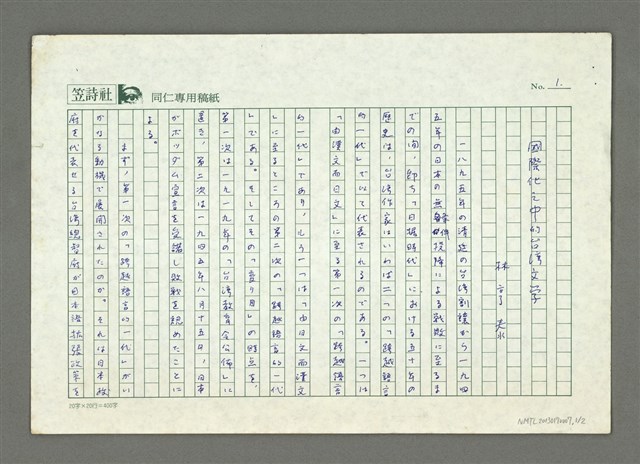 笠詩社
同仁専用稿紙
No. 1.
國際化之中的台湾文学
林亨泰
一八九五年の清廷の台湾割譲から一九四
五年の日本の無條件投降による戦敗に至るま
での間、即ち「日據時代」における五十年の
歴史は、台湾作家はいわば二つの「跨越語言
的一代」で以て代表されるのである。一つは
「由漢文而日文」に至る第一次の「跨越語言
的一代」であり、もう一つは「由日文而漢文
」に至るところの第二次の「跨越語言的一代
」である。そしてその「変り目」の時点を、
第一次は一九一九年の「台湾教育令公佈」に
置き、第二次は一九四五年八月十五日、日本
がポツダム宣言を受諾し敗戦を認めたことに
よる。
まず、第一次の「跨越語言的一代」がい
かなる動機で展開されたのか。それは日本政
府を代表せる台湾総督府が日本語拡張政策を
20字×20行=400字